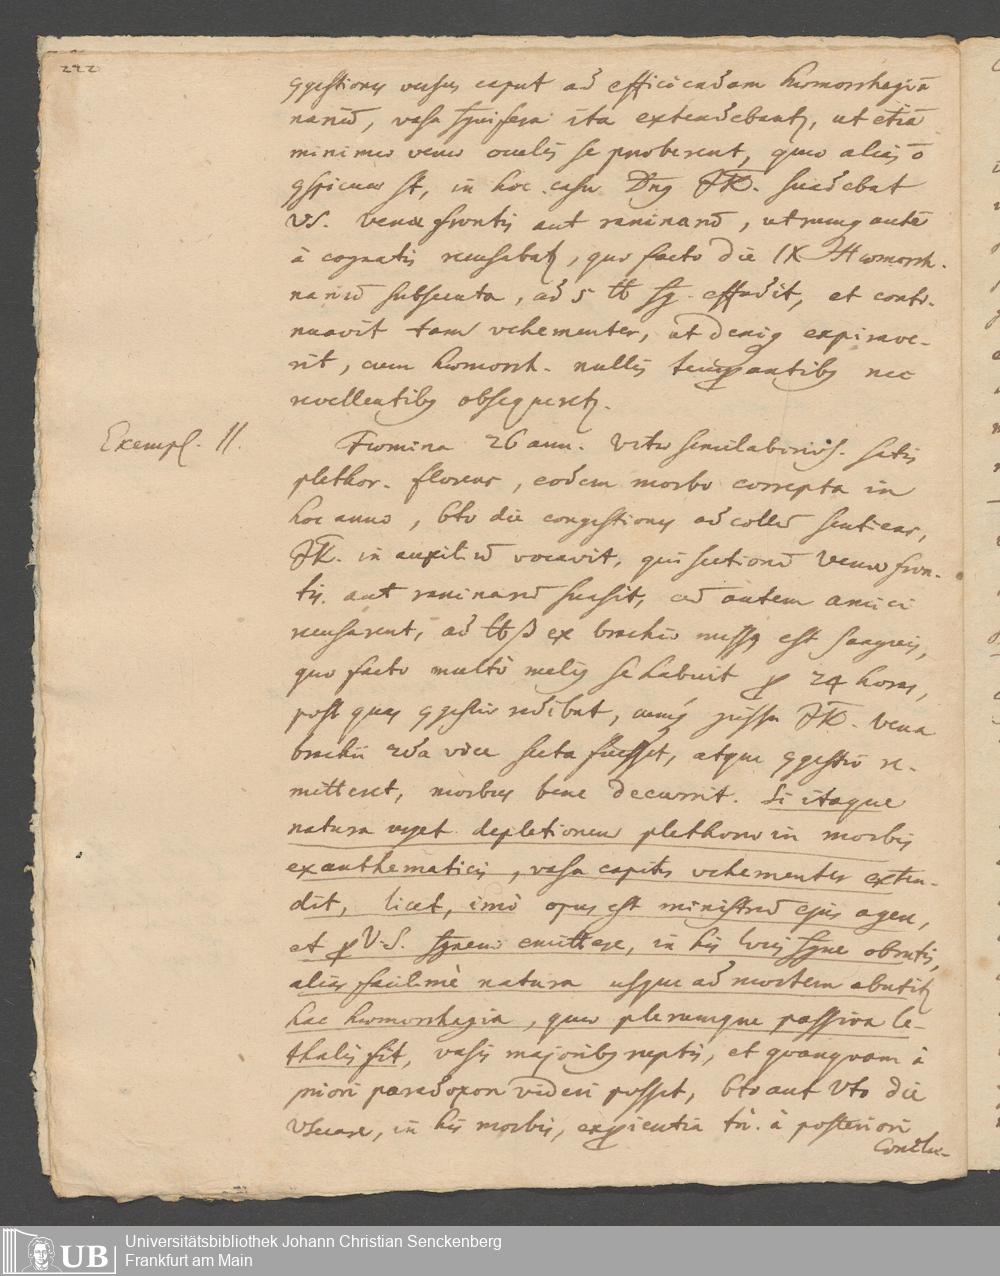 222
ggestiones versus caput ad efficiendam haemorrhagiā
nariū, vasa sgvifera ita extendebantr, ut etiā
minimae venae oculis se proberent, quae alias ō
gspicuae st, in hoc casu Dng JK. suadebat
VS. venae frontis aut raninarū, utrumq autē
à cognatis recusabatr, quo facto die IX Haemorrh.
nariū subsecuta, ad 5 ℔ sg. effudit, et conti-
nuavit tam vehementer, ut deniq expirave-
rit, cum haemorrh. nullis temperantibg nec
revellentibg obsequeretr.
Exempl. II.
Faemina 26 ann. vitae semilaborios. satis
plethor. florens, eodem morbo correpta in
hoc anno, 6to die congestiones ad collū sentiens,
JK. in auxiliū vocavit, qui sectionē venae fron-
tis aut raninarū suasit, cū autem amici
recusarent, ad ℔ β ex brachio missg est sanguis,
quo facto multò melig se habuit p 24 horas,
post quas ggestio redibat, cumq jussu JK. vena
brachii 2da vice secta fuisset, atque ggestio re-
mitteret, morbus bene decurrit. Si itaque
natura urget depletionem plethorae in morbis
exanthematicis, vasa capitis vehementer exten-
dit, licet, imò opus est ministrū ejus agere,
et p V.S. sgnem emittere, in his locis sgne obrutis,
alias facillimè natura usque ad mortem abutitr
hac haemorrhagia, quae plerumque passiva le-
thalis fit, vasis majoribg ruptis, et quanquam à
priori paradoxon videri posset, 6to aut Vto die
VSecare, in his morbis, experientia tn. à posteriori
Conclu-
Universitätsbibliothek Johann Christian Senckenberg
Frankfurt am Main
UB